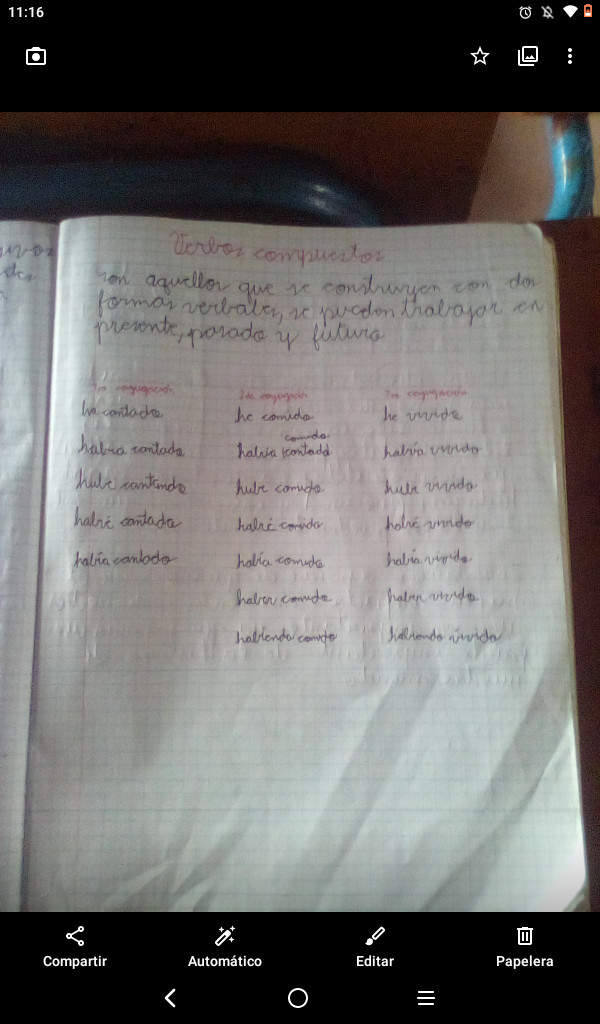 11:16
Verbos compuestos
son aquellos que se construyen con dos
formas verbales, se pueden trabajar en
presente, pasado y futuro
1ra conjugación 2da conjugación 3ra conjugación
ha cantado he comido he vivido
comido
habia cantado había contado había vivido
hube cantando hube comido hube vivido
habré cantado habré comido habré vivido
había cantado había comido había vivido
haber comido haber vivido
habiendo comido habiendo vivido
Compartir Automático Editar Papelera